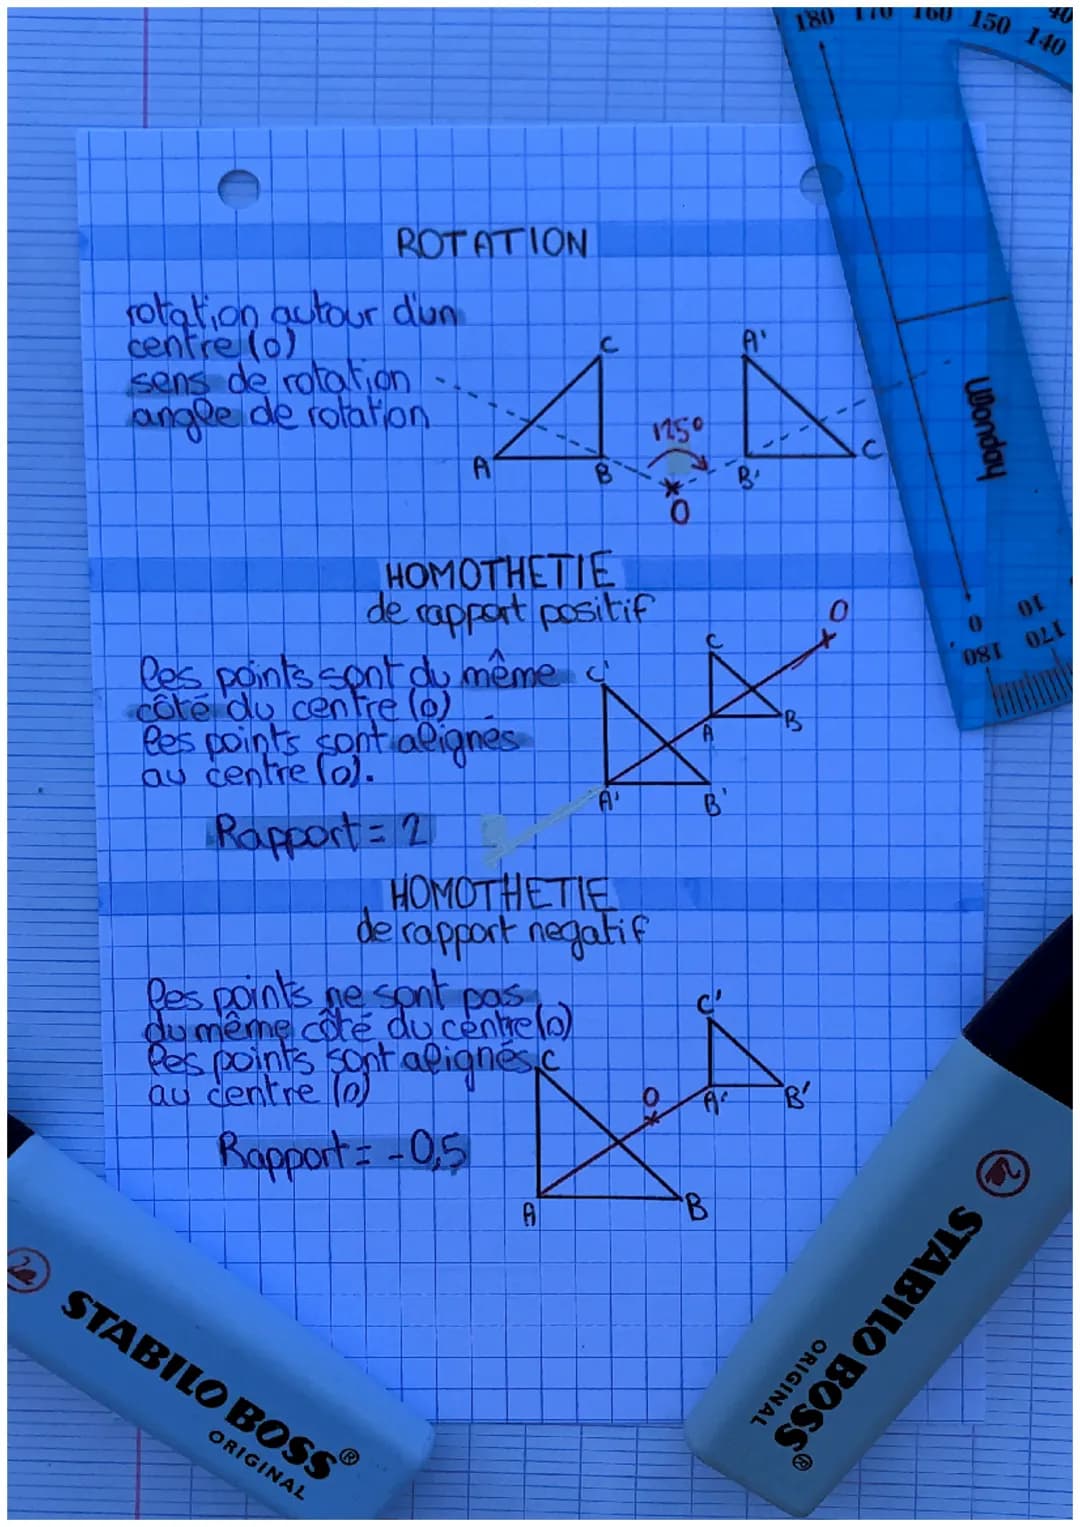 180 170 160 150 140 40
ROTATION
rotation autour d'un
centre (o)
sens de rotation
angle de rotation
C
A
B
125°
O
A'
B'
C
Wonday
0 10
180 170
HOMOTHETIE
de rapport positif
les points sont du même
côté du centre (o)
les points sont alignés
au centre (o).
Rapport = 2
O
C
A
B
C'
A'
B'
HOMOTHETIE
de rapport negatif
les points ne sont pas
du même côté du centre (o)
les points sont alignés
au centre (o)
Rapport = -0,5
C'
A'
B'
O
C
A
B
STABILO BOSS®
ORIGINAL
STABILO BOSS®
ORIGINAL